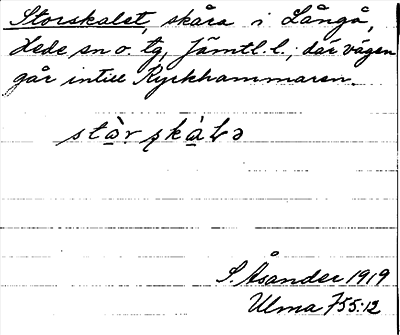 Storskalet, skåra i Långå,
Hede sn o. tg, Jämtl. l.; där vägen
går intill Kyrkhammaren.
stàr skàLə
S. Åsander 1919
Ulma 755:12